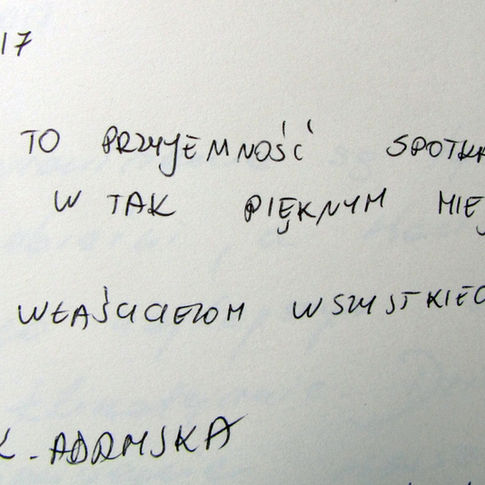 17
TO PRZYJEMNOŚĆ SPOTKA
W TAK PIĘKNYM MIEJ
WŁAŚCICIELOM WSZYSTKIEG
K. ADAMSKA